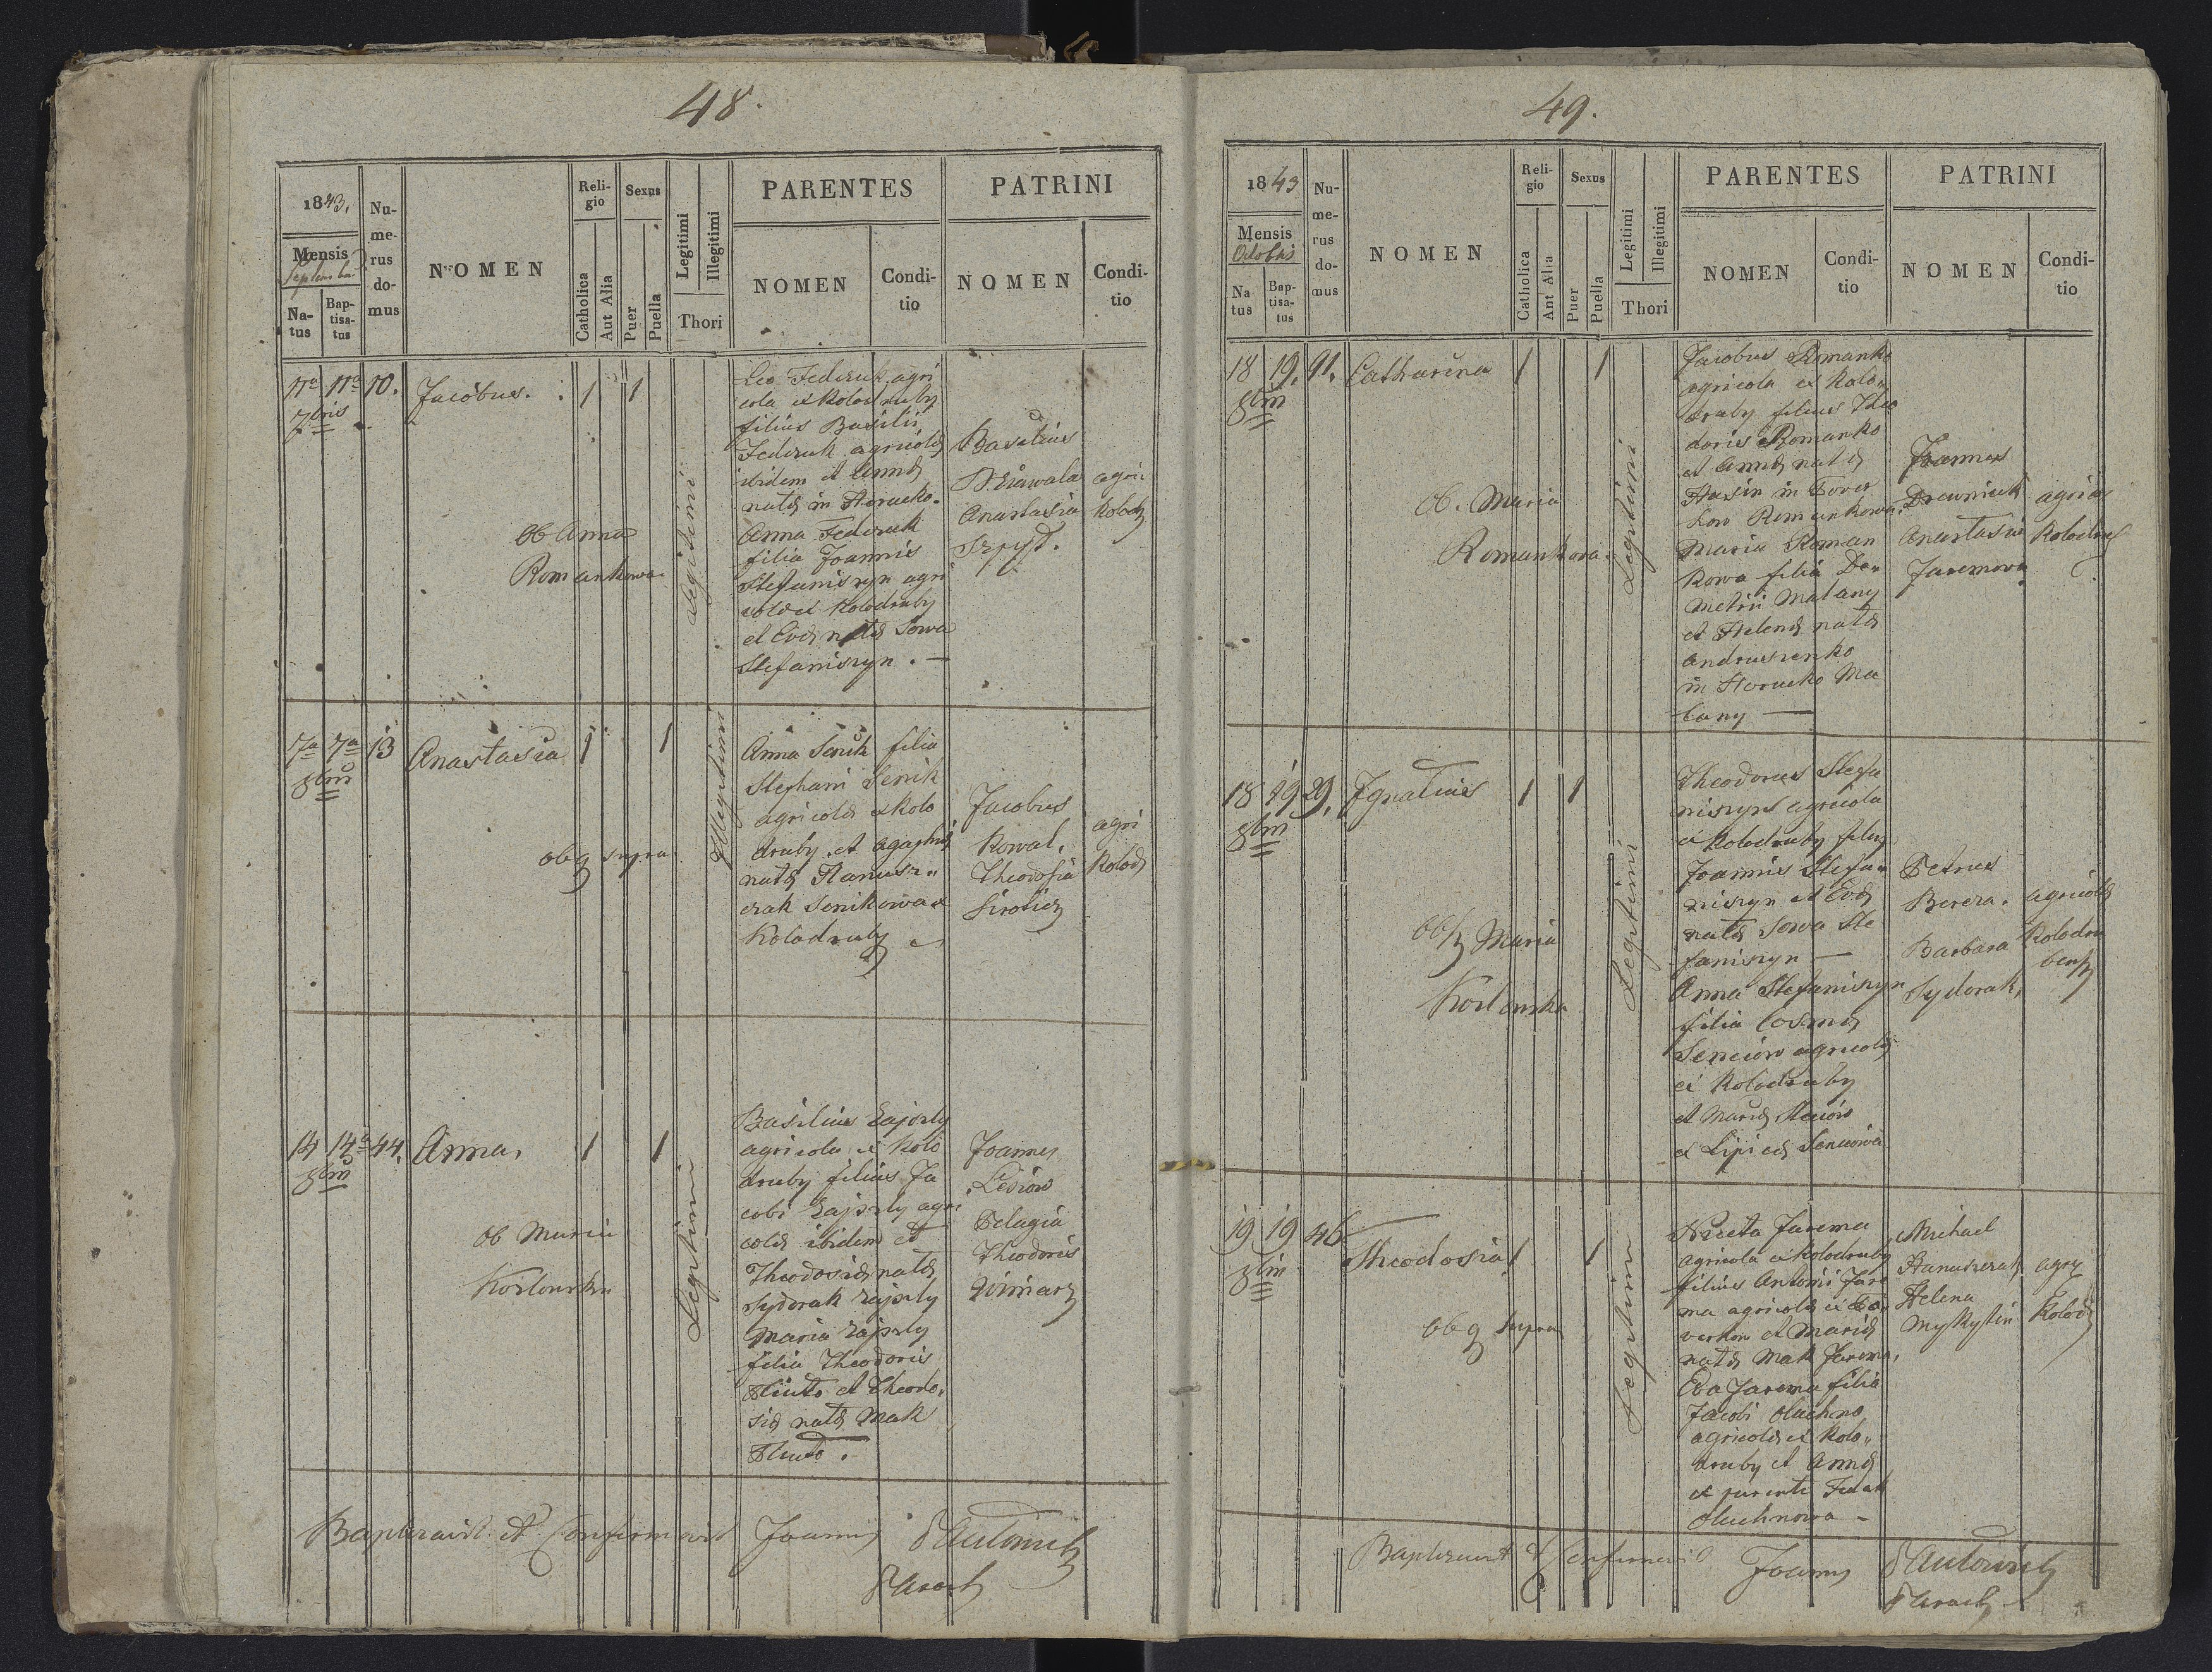 48.
1843.
Mensis
Septembris
Na-
tus
Bap-
tisa-
tus
Nu-
me-
rus
do-
mus
NOMEN
Reli-
gio
Catholica
Aut Alia
Sexus
Puer
Puella
Legitimi
Illegitimi
Thori
PARENTES
NOMEN
Condi-
tio
PATRINI
NOMEN
Condi-
tio
11a 11a 10. Jacobus. 1 1
7bris
Ob Anna
Romankowa
Legitimi
Leo Federuk agri
cola ex Kolodruby
filius Basilii
Federuk agricolæ
ibidem et Annæ
natæ in Horucko.
Anna Federuk
filia Joannis
Stefaniszyn agri
colæ ex Kolodruby
et Evæ natæ Sowa
Stefaniszyn. —
Basilius
Anastasia
agri
Kolod
7a 7a 13 Anastasia 1 1
8bris
obs supra
Illegitimi
Anna Senik filia
Stephani Senik
agricolæ ex Kolo
druby et Agaphiæ
natæ Hanusz„
czak Senikowa ex
Kolodruby
Jacobus
Kowal.
Theodosia
agri
Kolod
14 14a 44. Anna, 1 1
8bris
Ob Maria
Kozlowska
Legitimi
Basilius Zajszly
agricola ex Kolo
druby filius Ja
cobi Zajszly agri
colæ ibidem et
Theodosiæ natæ
Sydorak Zajszly
Maria Zajszly
filia Theodoris
et Theodo„
siæ natæ Mak
Joannes
Lesiow
Pelagia
Theodoris
Baptisavit et Confirmavit Joannes
Paroch
49.
1843
Mensis
Octobris
Na
tus
Bap-
tisa-
tus
Nu-
me-
rus
do-
mus
NOMEN
Reli-
gio
Catholica
Aut Alia
Sexus
Puer
Puella
Legitimi
Illegitimi
Thori
PARENTES
NOMEN
Condi-
tio
PATRINI
NOMEN
Condi-
tio
18 19. 91. Catharina 1 1
8bris
Ob. Maria
Romankowa.
Legitimi
Jacobus Romanko
agricola ex Kolo„
druby filius Theo
doris Romanko
et Annæ natæ
Hasin in
Romankowa.
Maria Roman
kowa filia De„
metrii Malany
et Helenæ natæ
Andruszenko
in Horucko Ma
lany —
Joannes
Drewniak
Anastasia
Jaremowa
agricolæ
Kolodrub
18 19 29. Ignatius 1 1
8bris
Obs Maria
Kozlowska
Legitimi
Theodorus Stefa
niszyn agricola
ex Kolodruby filius
Joannis Stefa„
niszyn et Evæ
natæ Sowa Ste
faniszyn —
Anna Stefaniszyn
filia Cosmæ
Senciow agricolæ
ex Kolodruby
et Mariæ
ex Senciowa
Petrus
Bereza.
Barbara
Sydorak,
agricolæ
Kolodru
bens
19 19 46 Theodosia 1 1
8bris
Obs supra
Legitimi
Niceta Jarema
agricola ex Kolodruby
filius Antonii Jare
ma agricolæ ex
et Mariæ
natæ Mak Jarema,
Eva Jarema filia
Jacobi Oluchno
agricolæ ex Kolo„
druby et Annæ
Oluchnowa —
Michael
Hanuszczak
Helena
Mykytin
agri
Kolod
Baptisavit et Confirmavit Joannes
Paroch